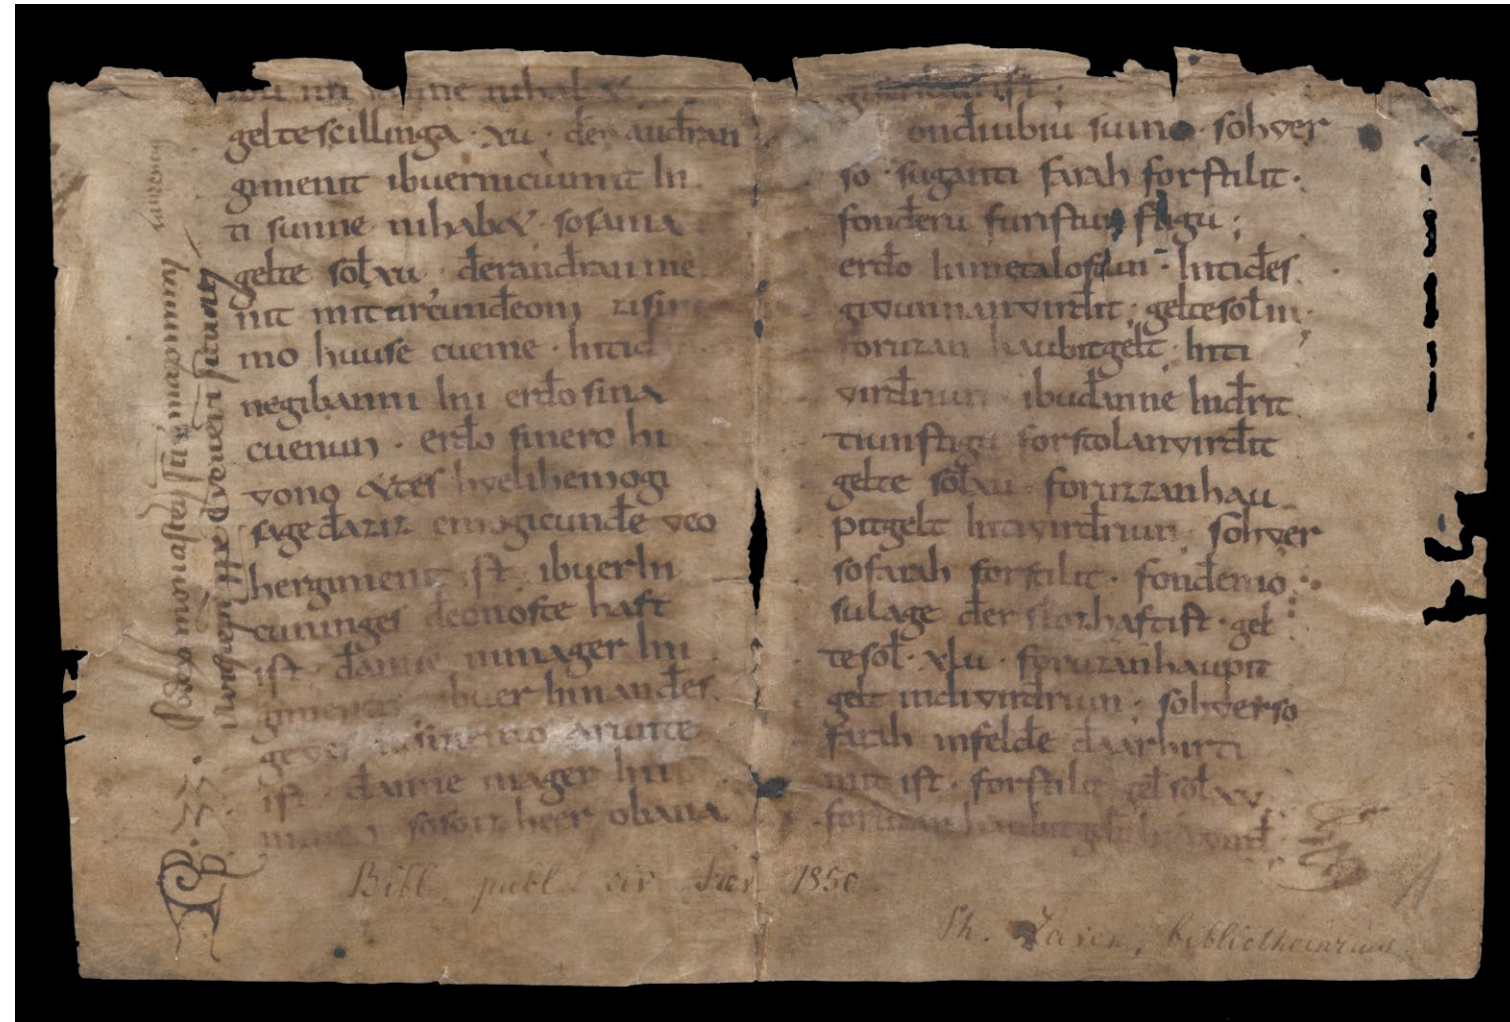 sunne nihabet
geltescillinga · xv · der andran
gimenit ibuer nicuimit in
ti sunne nihabet · sosama
gelte sol xv · đerandran me
nit mit urcundeom zisine
mo huuse cueme · intiđ
negibanni ini erđo sina
cuenun · erđo sinero hi
ƿono ettes hƿelihemogi
sage đaz iz emo gicunđe ƿeo
hergimenit ist · ibuerin
cuninges đeonoste haft
ist · đanne nimager ini
gimenen · ibuer innanđes
arunte
ist · đanne mager ini
menen soso iz heer obana
onđiubiu suino · sohƿer
so · suganti farah forstilit ·
fonđeru furistun stigu ;
erđo inmetalostun · intiđes
giƿunnanƿirđit ; geltesol iii ·
foruzan haubitgelt · inti
ƿirđriun · ibuđanne inđrit
tiunstigu forstolanƿirđit
gelte sol xv · foruzzanhau
pitgelt intiƿirđriun · sohƿer
sofarah forstilit · fonđemo
sulage đer slozhaftist · gel
tesol · xlv · foruzanhaupit
gelt indiƿirđriun ; sohƿerso
farah infelđe đaarhirti
mit ist · forstilit gel sol xv
foruzan haubitgelt intiƿirđ
Bibl. publ. civ. Trev. 1850.
Codex monasterii sancti
Pp. 33.